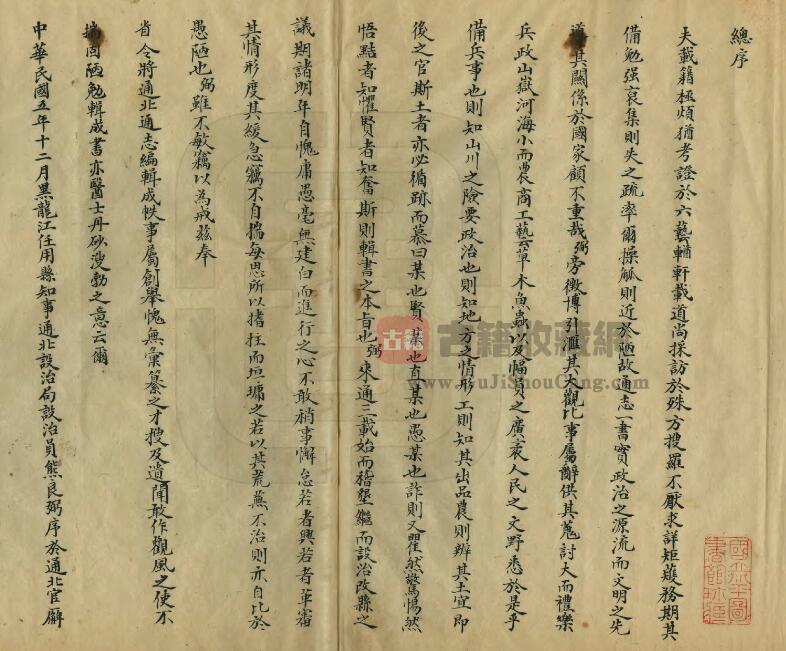 總序
夫載籍極煩猶考證於六藝輶軒載道尚採訪於殊方搜羅不厭求詳矩矱務期其
備勉强裒集則失之疏率爾操觚則近於陋故通志一書實政治之源流而文明之先
其關係於國家顧不重哉弼旁徵博引滙其大觀比事屬辭供其蒐討大而禮樂
兵政山嶽河海小而農商工藝草木魚蟲以及幅員之廣袤人民之文野悉於是乎
備兵事也則知山川之險要政治也則知地方之情形工則知其出品農則辨其土宜即
後之官斯土者亦必循跡而慕曰某也賢某也直某也愚某也詐則又瞿然驚惕然
悟黠者知懼賢者知奮斯則輯書之本旨也弼來通三載始而稽墾繼而設治改縣之
議期諸明年自愧庸愚毫無建白而進行之心不敢稍事懈怠若者興若者革審
其情形度其緩急竊不自揣每思所以搘拄而垣墉之若以其荒蕪不治則亦自比於
愚陋也弼雖不敏竊以為戒茲奉
省令將通北通志編輯成帙事屬創舉愧無彙纂之才搜及遺聞敢作觀風之使不
揣固陋勉輯成書亦醫士丹砂溲勃之意云爾
中華民國五年十二月黑龍江任用縣知事通北設治局設治員熊良弼序於通北官廨
古籍收藏網
www.GuJiShouCang.com